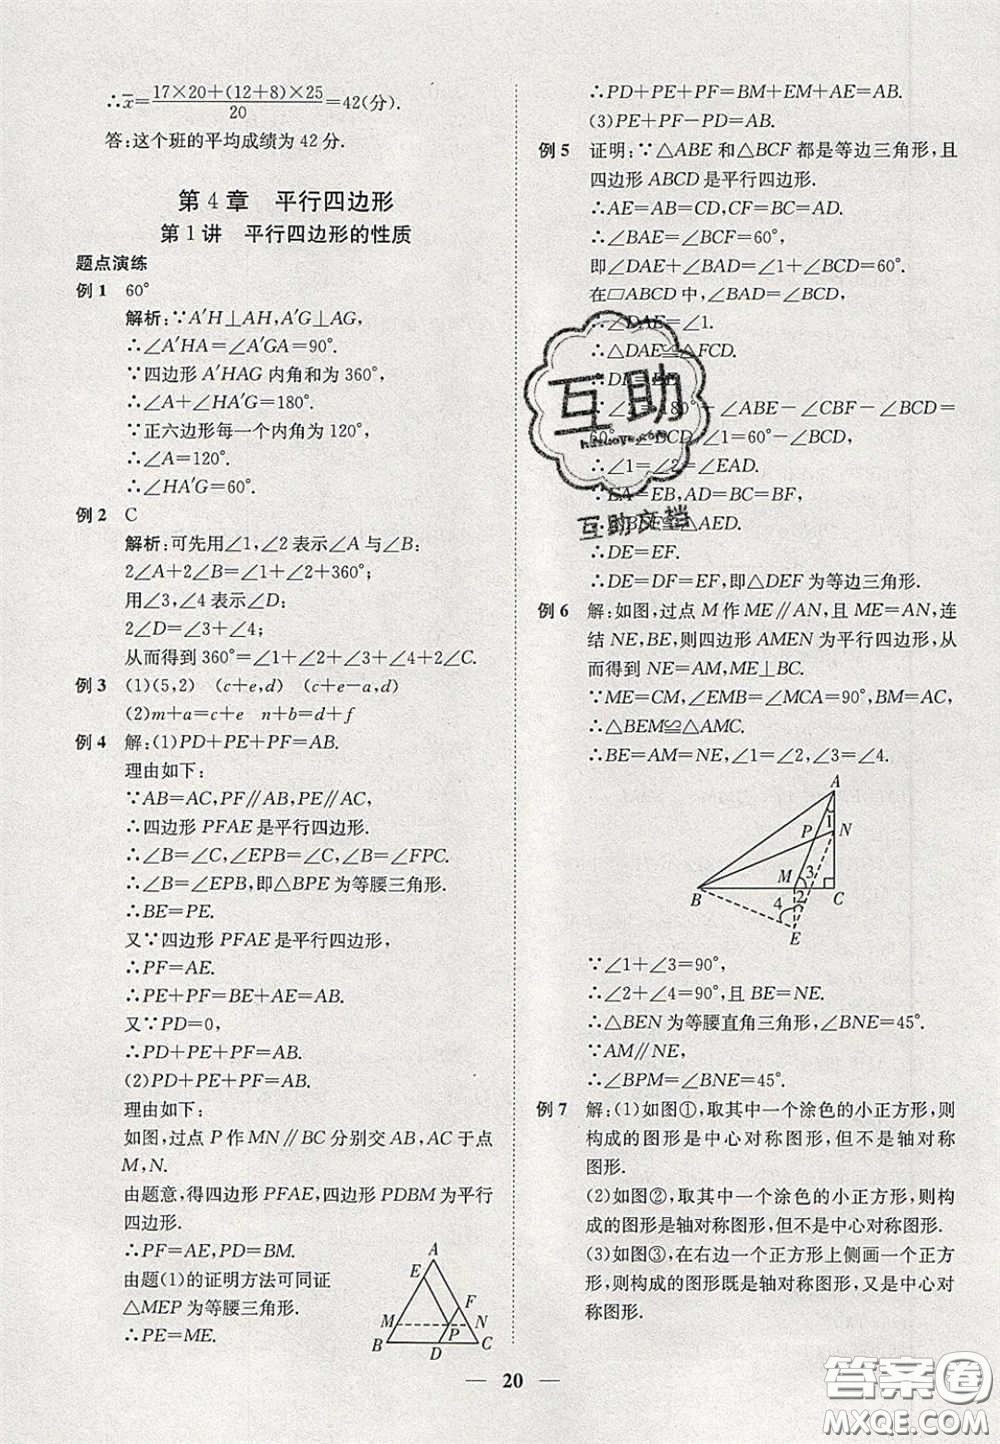 ∴x̄=17×20+(12+8)×25/20=42(分).
答:这个班的平均成绩为42分.
第4章 平行四边形
第1讲 平行四边形的性质
题点演练
例1 60°
解析:∵A′H⊥AH,A′G⊥AG,
∴∠A′HA=∠A′GA=90°.
∵四边形A′HAG内角和为360°,
∴∠A+∠HA′G=180°.
∵正六边形每一个内角为120°,
∴∠A=120°.
∴∠HA′G=60°.
例2 C
解析:可先用∠1,∠2表示∠A与∠B:
2∠A+2∠B=∠1+∠2+360°;
用∠3,∠4表示∠D:
2∠D=∠3+∠4;
从而得到360°=∠1+∠2+∠3+∠4+2∠C.
例3 (1)(5,2) (c+e,d) (c+e−a,d)
(2)m+a=c+e n+b=d+f
例4 解:(1)PD+PE+PF=AB.
理由如下:
∵AB=AC,PF∥AB,PE∥AC,
∴四边形PFAE是平行四边形.
∴∠B=∠C,∠EPB=∠C,∠B=∠FPC.
∴∠B=∠EPB,即△BPE为等腰三角形.
∴BE=PE.
又∵四边形PFAE是平行四边形,
∴PF=AE.
∴PE+PF=BE+AE=AB.
又∵PD=0,
∴PD+PE+PF=AB.
(2)PD+PE+PF=AB.
理由如下:
如图,过点P作MN∥BC分别交AB,AC于点
M,N.
由题意,得四边形PFAE,四边形PDBM为平行
四边形.
∴PF=AE,PD=BM.
由题(1)的证明方法可同证
△MEP为等腰三角形.
∴PE=ME.
A
E
F
M
N
P
B
D
C
∴PD+PE+PF=BM+EM+AE=AB.
(3)PE+PF−PD=AB.
例5 证明:∵△ABE和△BCF都是等边三角形,且
四边形ABCD是平行四边形.
∴AE=AB=CD,CF=BC=AD.
∴∠BAE=∠BCF=60°,
即∠DAE+∠BAD=∠1+∠BCD=60°.
在▱ABCD中,∠BAD=∠BCD,
∴∠DAE=∠1.
∴△DAE≌△FCD.
∴DE=
∵∠2=180°−∠ABE−∠CBF−∠BCD=
60°−∠BCD,∠1=60°−∠BCD,
∴∠1=∠2=∠EAD.
∵EA=EB,AD=BC=BF,
≌△AED.
∴DE=EF.
∴DE=DF=EF,即△DEF为等边三角形.
例6 解:如图,过点M作ME∥AN,且ME=AN,连
结NE,BE,则四边形AMEN为平行四边形,从
而得到NE=AM,ME⊥BC.
∵ME=CM,∠EMB=∠MCA=90°,BM=AC,
∴△BEM≌△AMC.
∴BE=AM=NE,∠1=∠2,∠3=∠4.
A
1
P
N
M
3
B
2
C
4
E
∵∠1+∠3=90°,
∴∠2+∠4=90°,且BE=NE.
∴△BEN为等腰直角三角形,∠BNE=45°.
∵AM∥NE,
∴∠BPM=∠BNE=45°.
例7 解:(1)如图①,取其中一个涂色的小正方形,则
构成的图形是中心对称图形,但不是轴对称
图形.
(2)如图②,取其中一个涂色的小正方形,则构
成的图形是轴对称图形,但不是中心对称图形.
(3)如图③,在右边一个正方形上侧画一个正方
形,则构成的图形既是轴对称图形,又是中心对
称图形.
互助
互助文档
20
答案圈
MXQE.COM